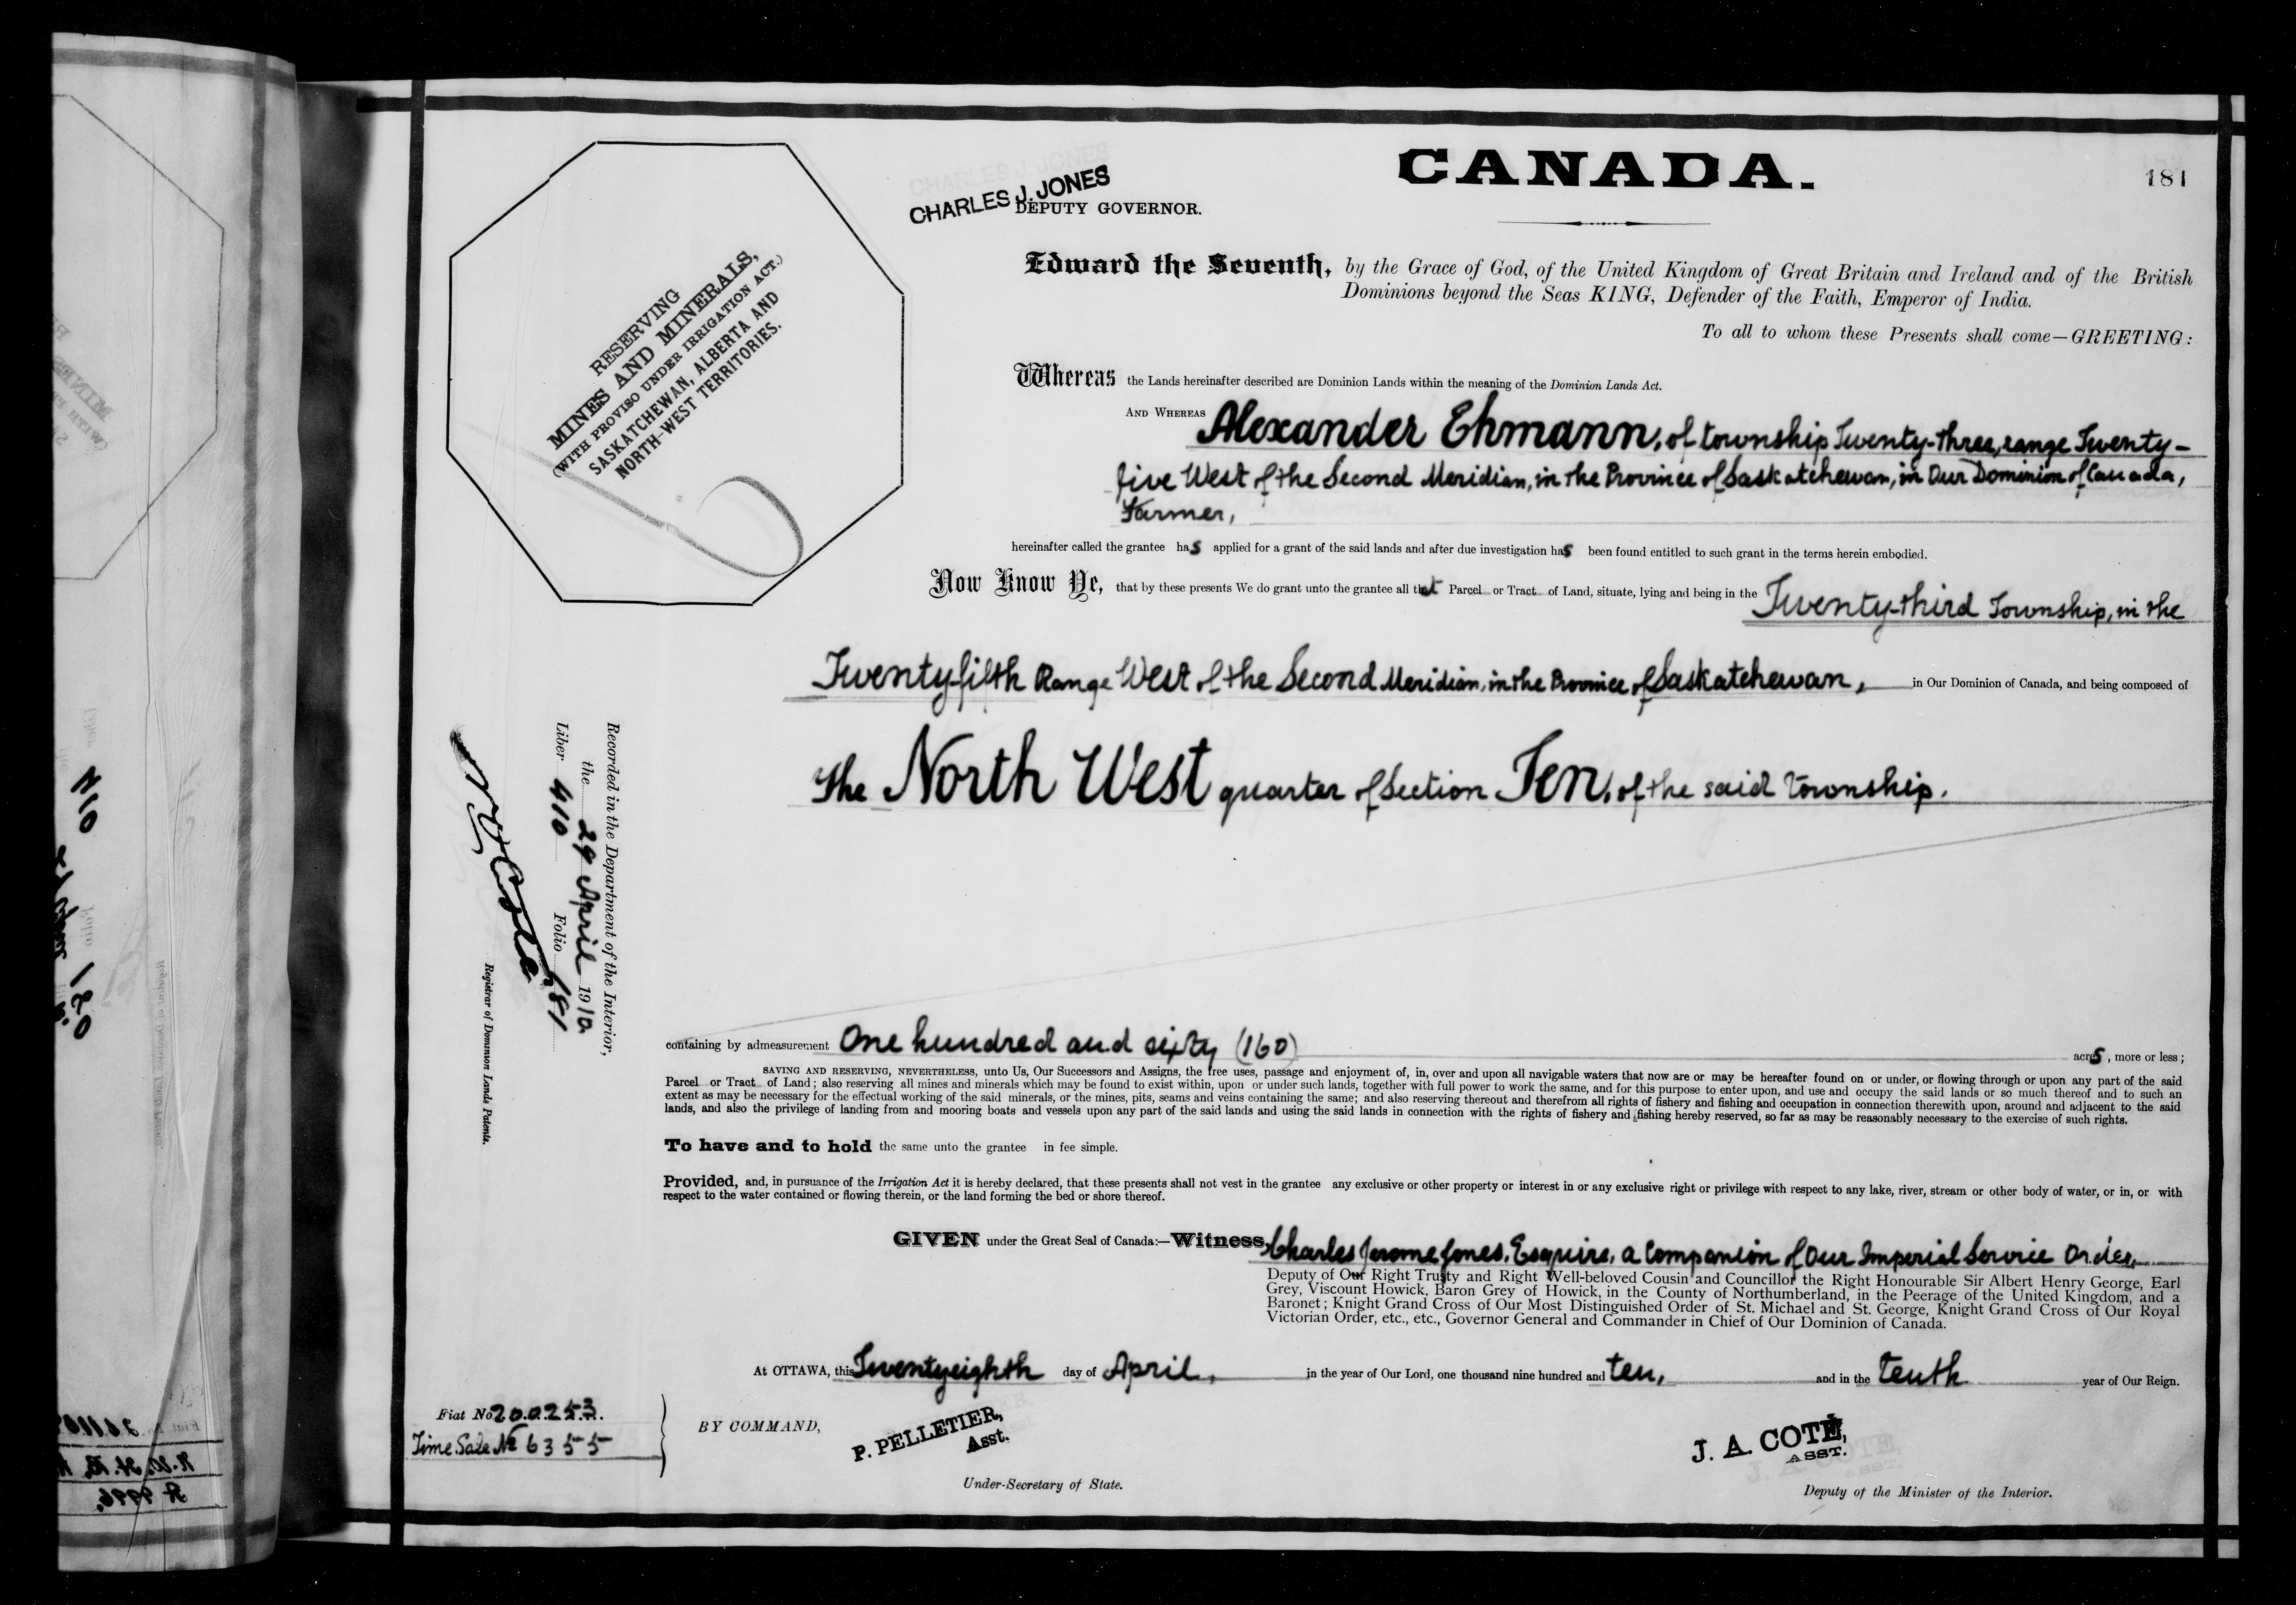 CANADA.
181
CHARLES J. JONES
DEPUTY GOVERNOR.
RESERVING
MINES AND MINERALS,
(WITH PROVISO UNDER IRRIGATION ACT.)
SASKATCHEWAN, ALBERTA AND
NORTH-WEST TERRITORIES.
Edward the Seventh, by the Grace of God, of the United Kingdom of Great Britain and Ireland and of the British
Dominions beyond the Seas KING, Defender of the Faith, Emperor of India.
To all to whom these Presents shall come—GREETING:
Whereas the Lands hereinafter described are Dominion Lands within the meaning of the Dominion Lands Act.
AND WHEREAS Alexander Ehmann, of township Twenty-three, range Twenty-
five West of the Second Meridian, in the Province of Saskatchewan, in Our Dominion of Canada,
Farmer,
hereinafter called the grantee has applied for a grant of the said lands and after due investigation has been found entitled to such grant in the terms herein embodied.
Now Know Ye, that by these presents We do grant unto the grantee all that Parcel or Tract of Land, situate, lying and being in the Twenty-third Township, in the
Twenty-fifth Range West of the Second Meridian, in the Province of Saskatchewan, in Our Dominion of Canada, and being composed of
The North West quarter of Section Ten, of the said Township.
Recorded in the Department of the Interior,
the 29 April 1910
Liber 410 Folio 181
N O Coté
Registrar of Dominion Lands Patents.
containing by admeasurement One hundred and sixty (160) acres, more or less;
SAVING AND RESERVING, NEVERTHELESS, unto Us, Our Successors and Assigns, the free uses, passage and enjoyment of, in, over and upon all navigable waters that now are or may be hereafter found on or under, or flowing through or upon any part of the said
Parcel or Tract of Land; also reserving all mines and minerals which may be found to exist within, upon or under such lands, together with full power to work the same, and for this purpose to enter upon, and use and occupy the said lands or so much thereof and to such an
extent as may be necessary for the effectual working of the said minerals, or the mines, pits, seams and veins containing the same; and also reserving thereout and therefrom all rights of fishery and fishing and occupation in connection therewith upon, around and adjacent to the said
lands, and also the privilege of landing from and mooring boats and vessels upon any part of the said lands and using the said lands in connection with the rights of fishery and fishing hereby reserved, so far as may be reasonably necessary to the exercise of such rights.
To have and to hold the same unto the grantee in fee simple.
Provided, and, in pursuance of the Irrigation Act it is hereby declared, that these presents shall not vest in the grantee any exclusive or other property or interest in or any exclusive right or privilege with respect to any lake, river, stream or other body of water, or in, or with
respect to the water contained or flowing therein, or the land forming the bed or shore thereof.
GIVEN under the Great Seal of Canada:—Witness, Charles Jerome Jones, Esquire, a Companion of Our Imperial Service Order,
Deputy of Our Right Trusty and Right Well-beloved Cousin and Councillor the Right Honourable Sir Albert Henry George, Earl
Grey, Viscount Howick, Baron Grey of Howick, in the County of Northumberland, in the Peerage of the United Kingdom, and a
Baronet; Knight Grand Cross of Our Most Distinguished Order of St. Michael and St. George, Knight Grand Cross of Our Royal
Victorian Order, etc., etc., Governor General and Commander in Chief of Our Dominion of Canada.
At OTTAWA, this Twentyeighth day of April, in the year of Our Lord, one thousand nine hundred and ten, and in the tenth year of Our Reign.
Fiat No 200253.
Time Sale No 6355
BY COMMAND,
P. PELLETIER,
Asst.
Under-Secretary of State.
J. A. COTÉ,
ASST.
Deputy of the Minister of the Interior.